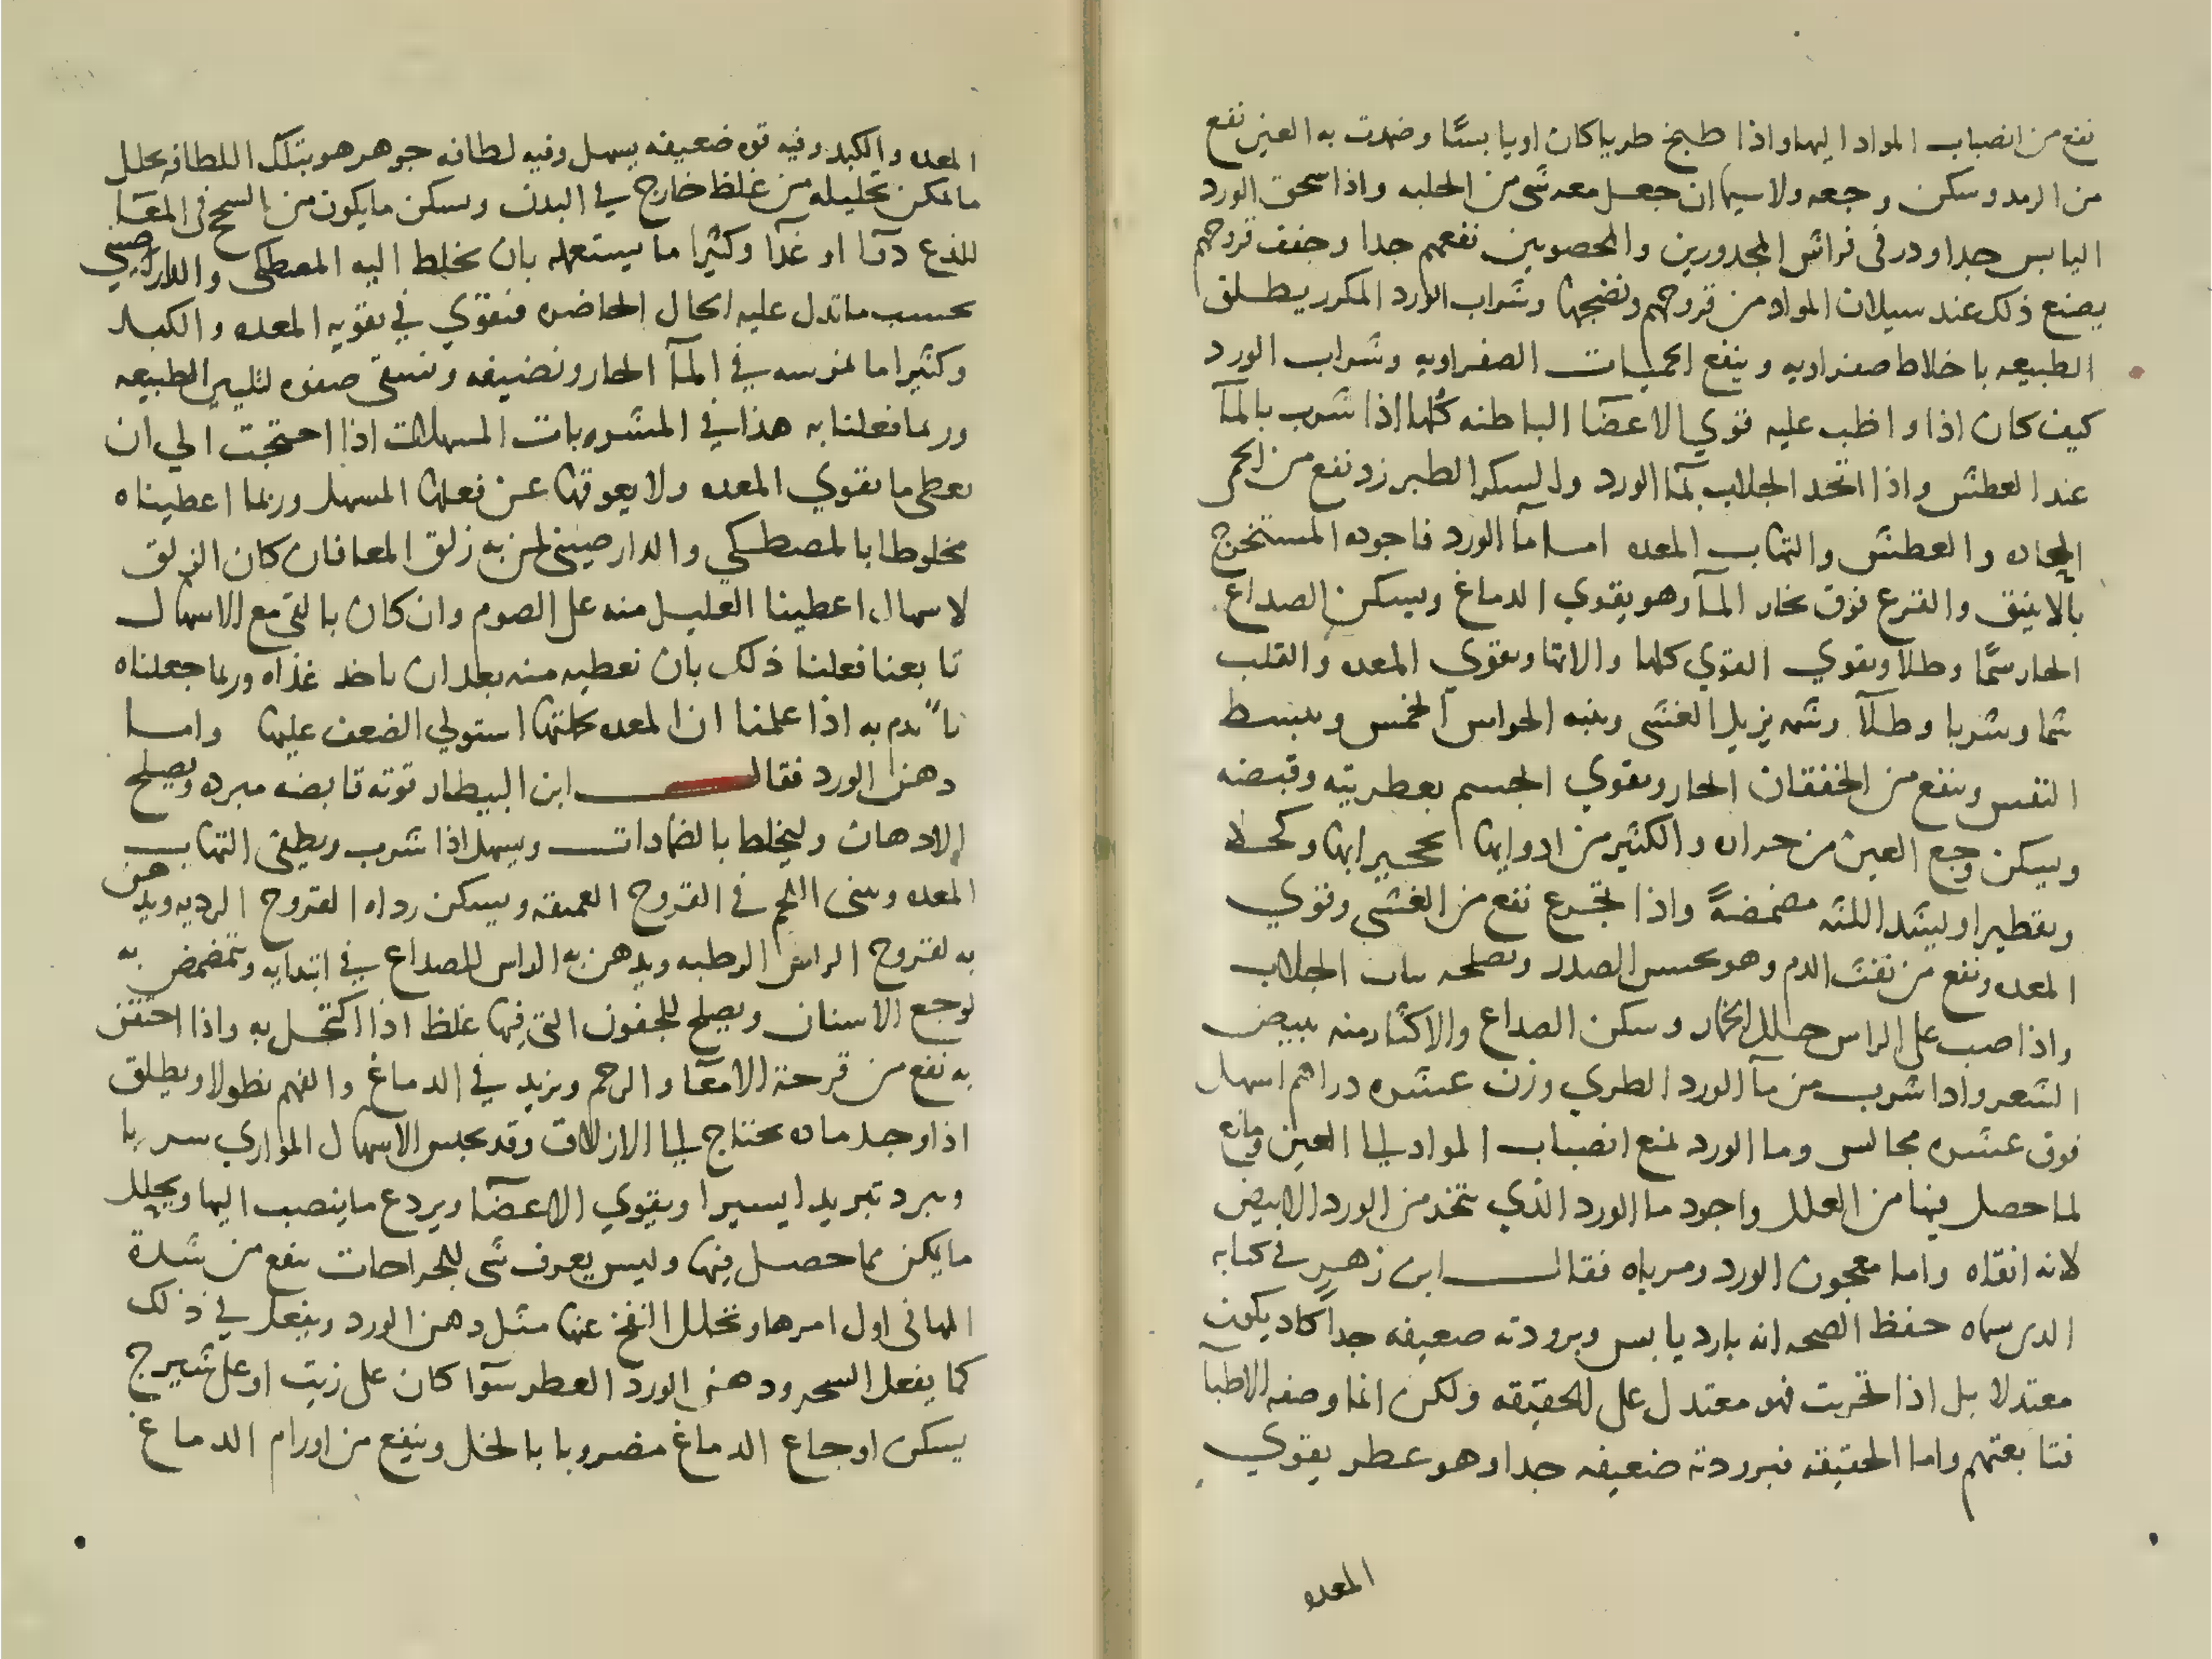 نفع من انصباب المواد اليها واذا طبخ طريا كان او يابسًا وضمدت به العين نفع
من الرمد وسكن وجعه ولا سيما ان جعل معه شى من الحلبه واذا سحق الورد
اليابس جدا وذر فى فراش المجدورين والمحصوبين نفعهم جدا وجفف قروحهم
يصنع ذلك عند سيلان المواد من قروحهم ونضجها وشراب الورد المكرر يطلق
الطبيعه باخلاط صفراويه وينفع الحميات الصفراويه وشراب الورد
كيف كان اذا واظب عليه قوي الاعضآ الباطنه كلها اذا شرب بالمآ
عند العطش واذا اتخد الجلاب بمآ الورد والسكر الطبرزد نفع من الحمى
الحاده والعطش والتهاب المعده اما مآ الورد فاجوده المستخرج
بالانبيق والقرع فوق بخار المآ وهو يقوي الدماغ ويسكن الصداع
الحار شمًا وطلا ويقوي القوي كلها والاتها ويقوي المعده والقلب
شما وشربا وطلآ وشمه يزيل الغشى وينبه الحواس الخمس ويبسط
النفس وينفع من الخفقان الحار ويقوي الجسم بعطريته وقبضه
ويسكن وجع العين من حراره والكثير من ادوايها وكحلا
وتقطيرا ويشد اللثه مضمضةً واذا تجرع نفع من الغشى وقوي
المعده ونفع من نفث الدم وهو الصدر ويصلحه الجلاب
واذا صب على الراس حلل الخمار وسكن الصداع والاكثار منه يبيض
الشعر واذا شرب من مآ الورد الطري وزن عشره دراهم اسهل
فوق عشره مجالس وما الورد يمنع انصباب المواد الي العين
لما حصل فيها من العلل واجود ما الورد الذي يتخذ من الورد الابيض
لانه انقاه واما معجون الورد ومرباه فقال ابن زهر في كتابه
الدى سماه حفظ الصحه انه بارد يابس وبرودته ضعيفه جدا كاد يكون
معتدلا بل اذا تحريت فهو معتدل على الحقيقه ولكن انما وصفه الاطبآ
فتابعتهم واما الحقيقه فبرودته ضعيفه جدا وهو عطر يقوي
المعده
المعده والكبد وفيه قوه ضعيفه يسهل وفيه لطافه جوهر هو بتلك اللطافه يحلل
ما يمكن تحليله من غلظ خارج في البدن ويسكن ما يكون من السحج فى المعآ
للذع دوآ او غذآ وكثيرا ما يستعمله بان يخلط اليه المصطكى والدارصيني
بحسب ما تدل عليه الحال الحاضره فتقوي في تقويه المعده والكبد
وكثيرا ما نمرسه في المآ الحار ونضيفه ونسقى صفوه لتليين الطبيعه
وربما فعلنا به هذا في المشروبات المسهلات اذا احتجت الي ان
يعطى ما يقوي المعده ولا يعوقها عن فعلها المسهل وربما اعطيناه
مخلوطا بالمصطكي والدارصينى لمن به زلق المعا فان كان الزلق
لاسهال اعطينا العليل منه على الصوم وان كان بالقى مع الاسهال
تابعنا فعلنا ذلك بان نعطيه منه بعد ان ياخذ غذاه وربما جعلناه
به اذا علمنا ان المعده كلتها استولي الضعف عليها واما
دهن الورد فقال ابن البيطار قوته قابضه مبرده ويصلح
الادهان وليخلط بالضمادات ويسهل اذا شرب ويطفى التهاب
المعده وينبى اللحم في القروح العميقه ويسكن رداه القروح الرديه ويدهن
به لقروح الراس الرطبه ويدهن به الراس للصداع في ابتدايه ويتمضمض به
لوجع الاسنان ويصلح للجفون التى فيها غلظ اذا اكتحل به واذا احتقن
به نفع من قرحة الامعآ والرحم ويزيد في الدماغ والفهم نطولا ويطلق
اذا وجد ماده يحتاج الي الازلاق وقد يحبس الاسهال المراري شربا
ويبرد تبريدا يسيرا ويقوي الاعضآ ويردع ما ينصب اليها ويحلل
ما يكن مما حصل فيها وليس يعرف شى للجراحات ينفع من شدة
المها فى اول امرها وتحلل النفخ عنها مثل دهن الورد ويفعل في ذلك
كما يفعل السحر ودهن الورد العطر سوآ كان على زيت او على شيرج
يسكن اوجاع الدماغ مضروبا بالخل وينفع من اورام الدماغ